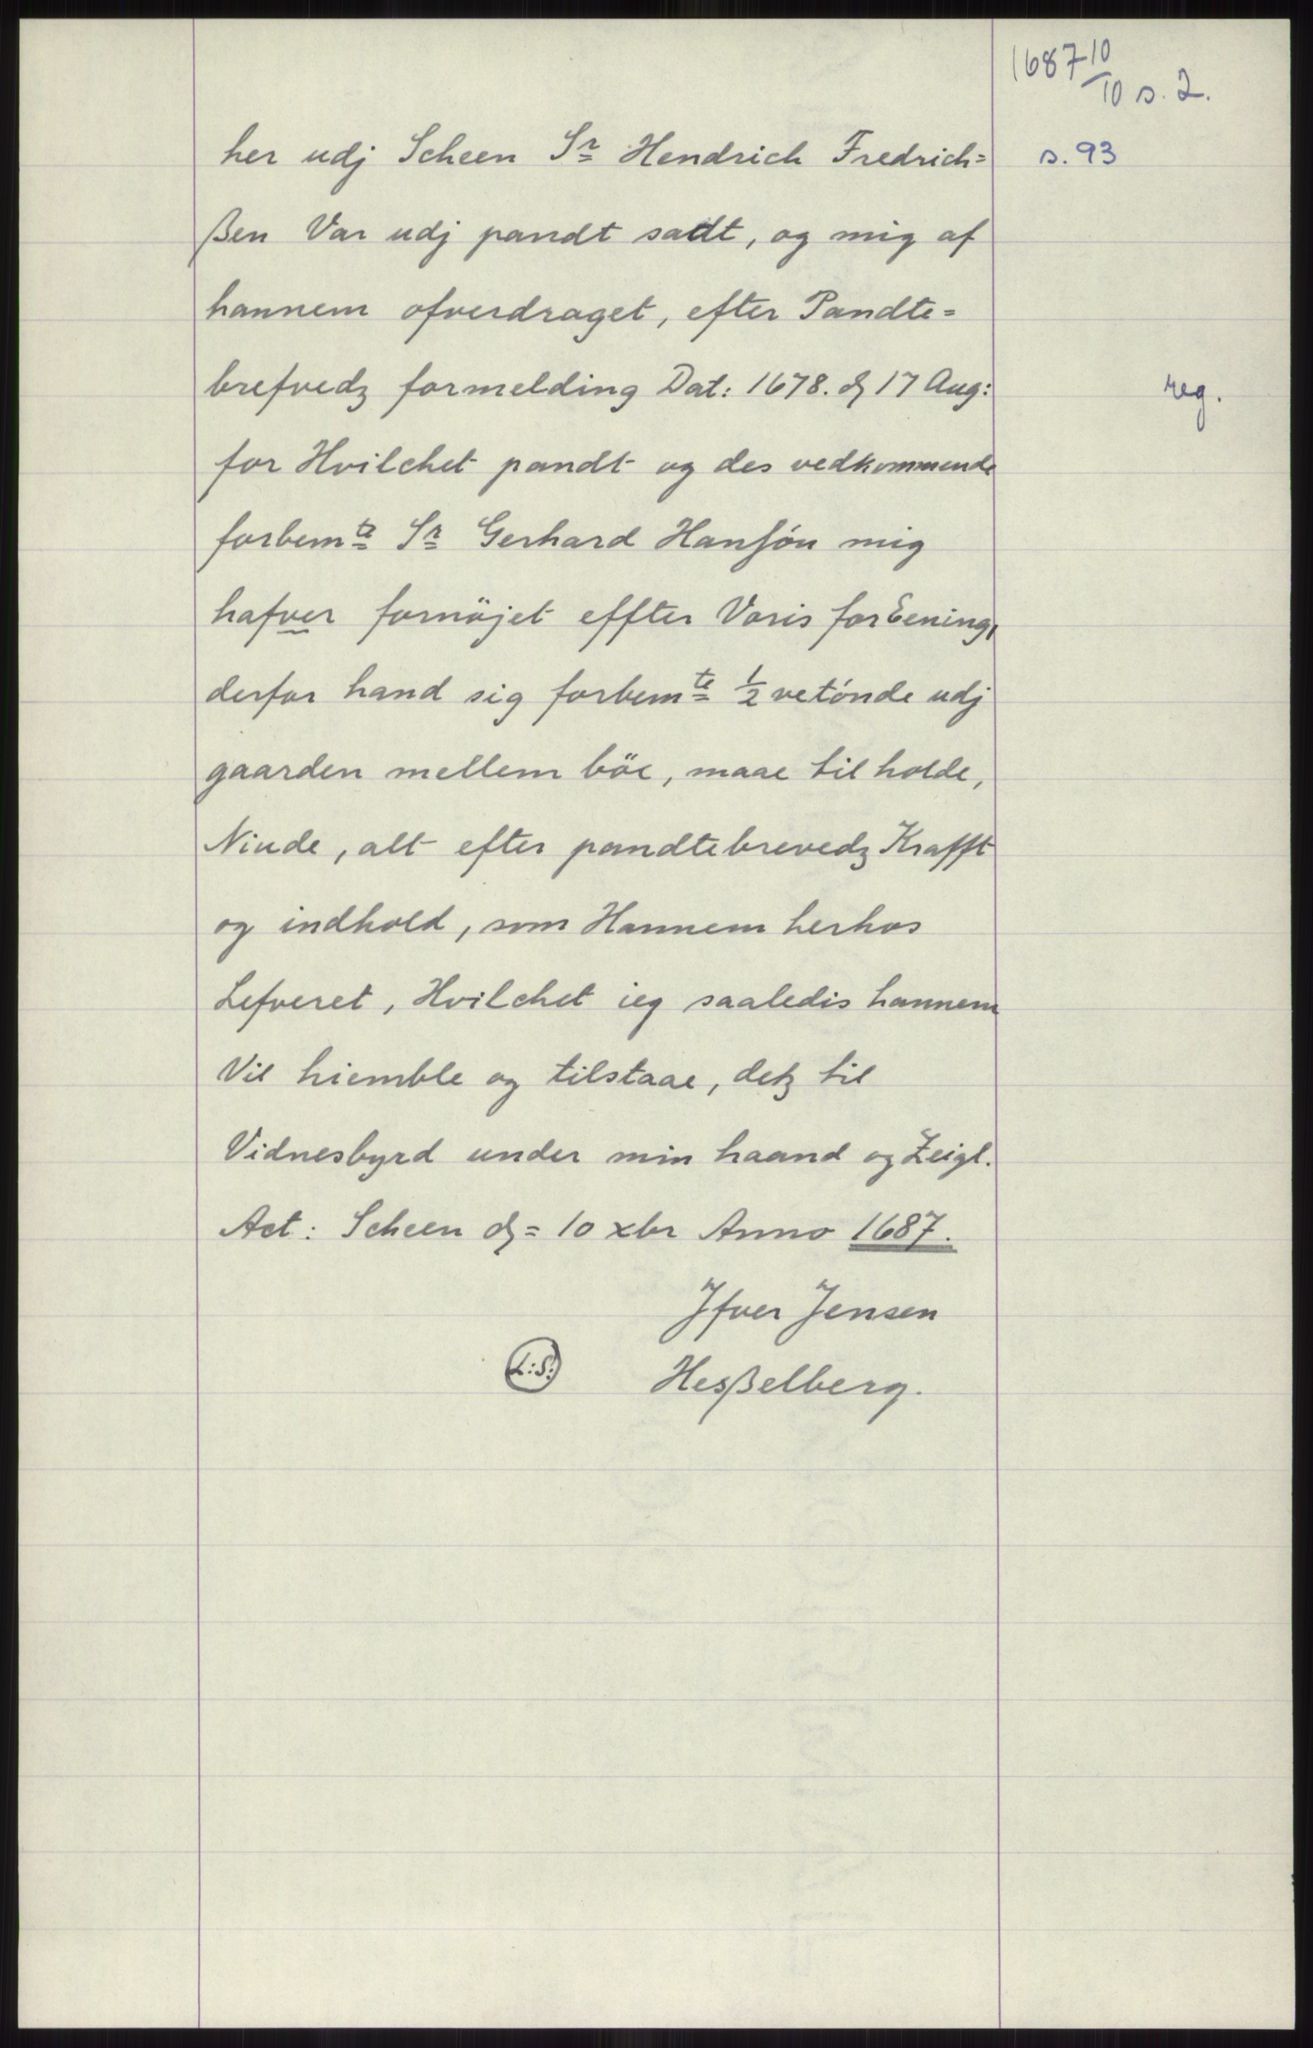 1687 10/10 s. 2.
her udj Scheen Sr Hendrich Fredrich=
s. 93
ßen Var udj pandt sadt, og mig af
hannem ofverdraget, efter Pandte=
brefvedz formelding Dat: 1678. dʒ 17 Aug:
reg.
for Hvilchet pandt og des vedkommende
forbemte Sr Gerhard Hansón mig
hafver fornöjet effter Voris forEening,
derfor hand sig forbemte ½ vetónde udj
gaarden mellem böe, maae til holde,
Niude, alt efter pandtebrevedz Krafft
og indhold, som Hannem herhos
Lefveret, Hvilchet ieg saaledis hannem
Vil hiemble og tilstaae, detz til
Vidnesbyrd under min haand og Zeigl.
Act: Scheen dʒ= 10 xbr Anno 1687.
Jfver Jensen
L:S:
Hesßelberg.